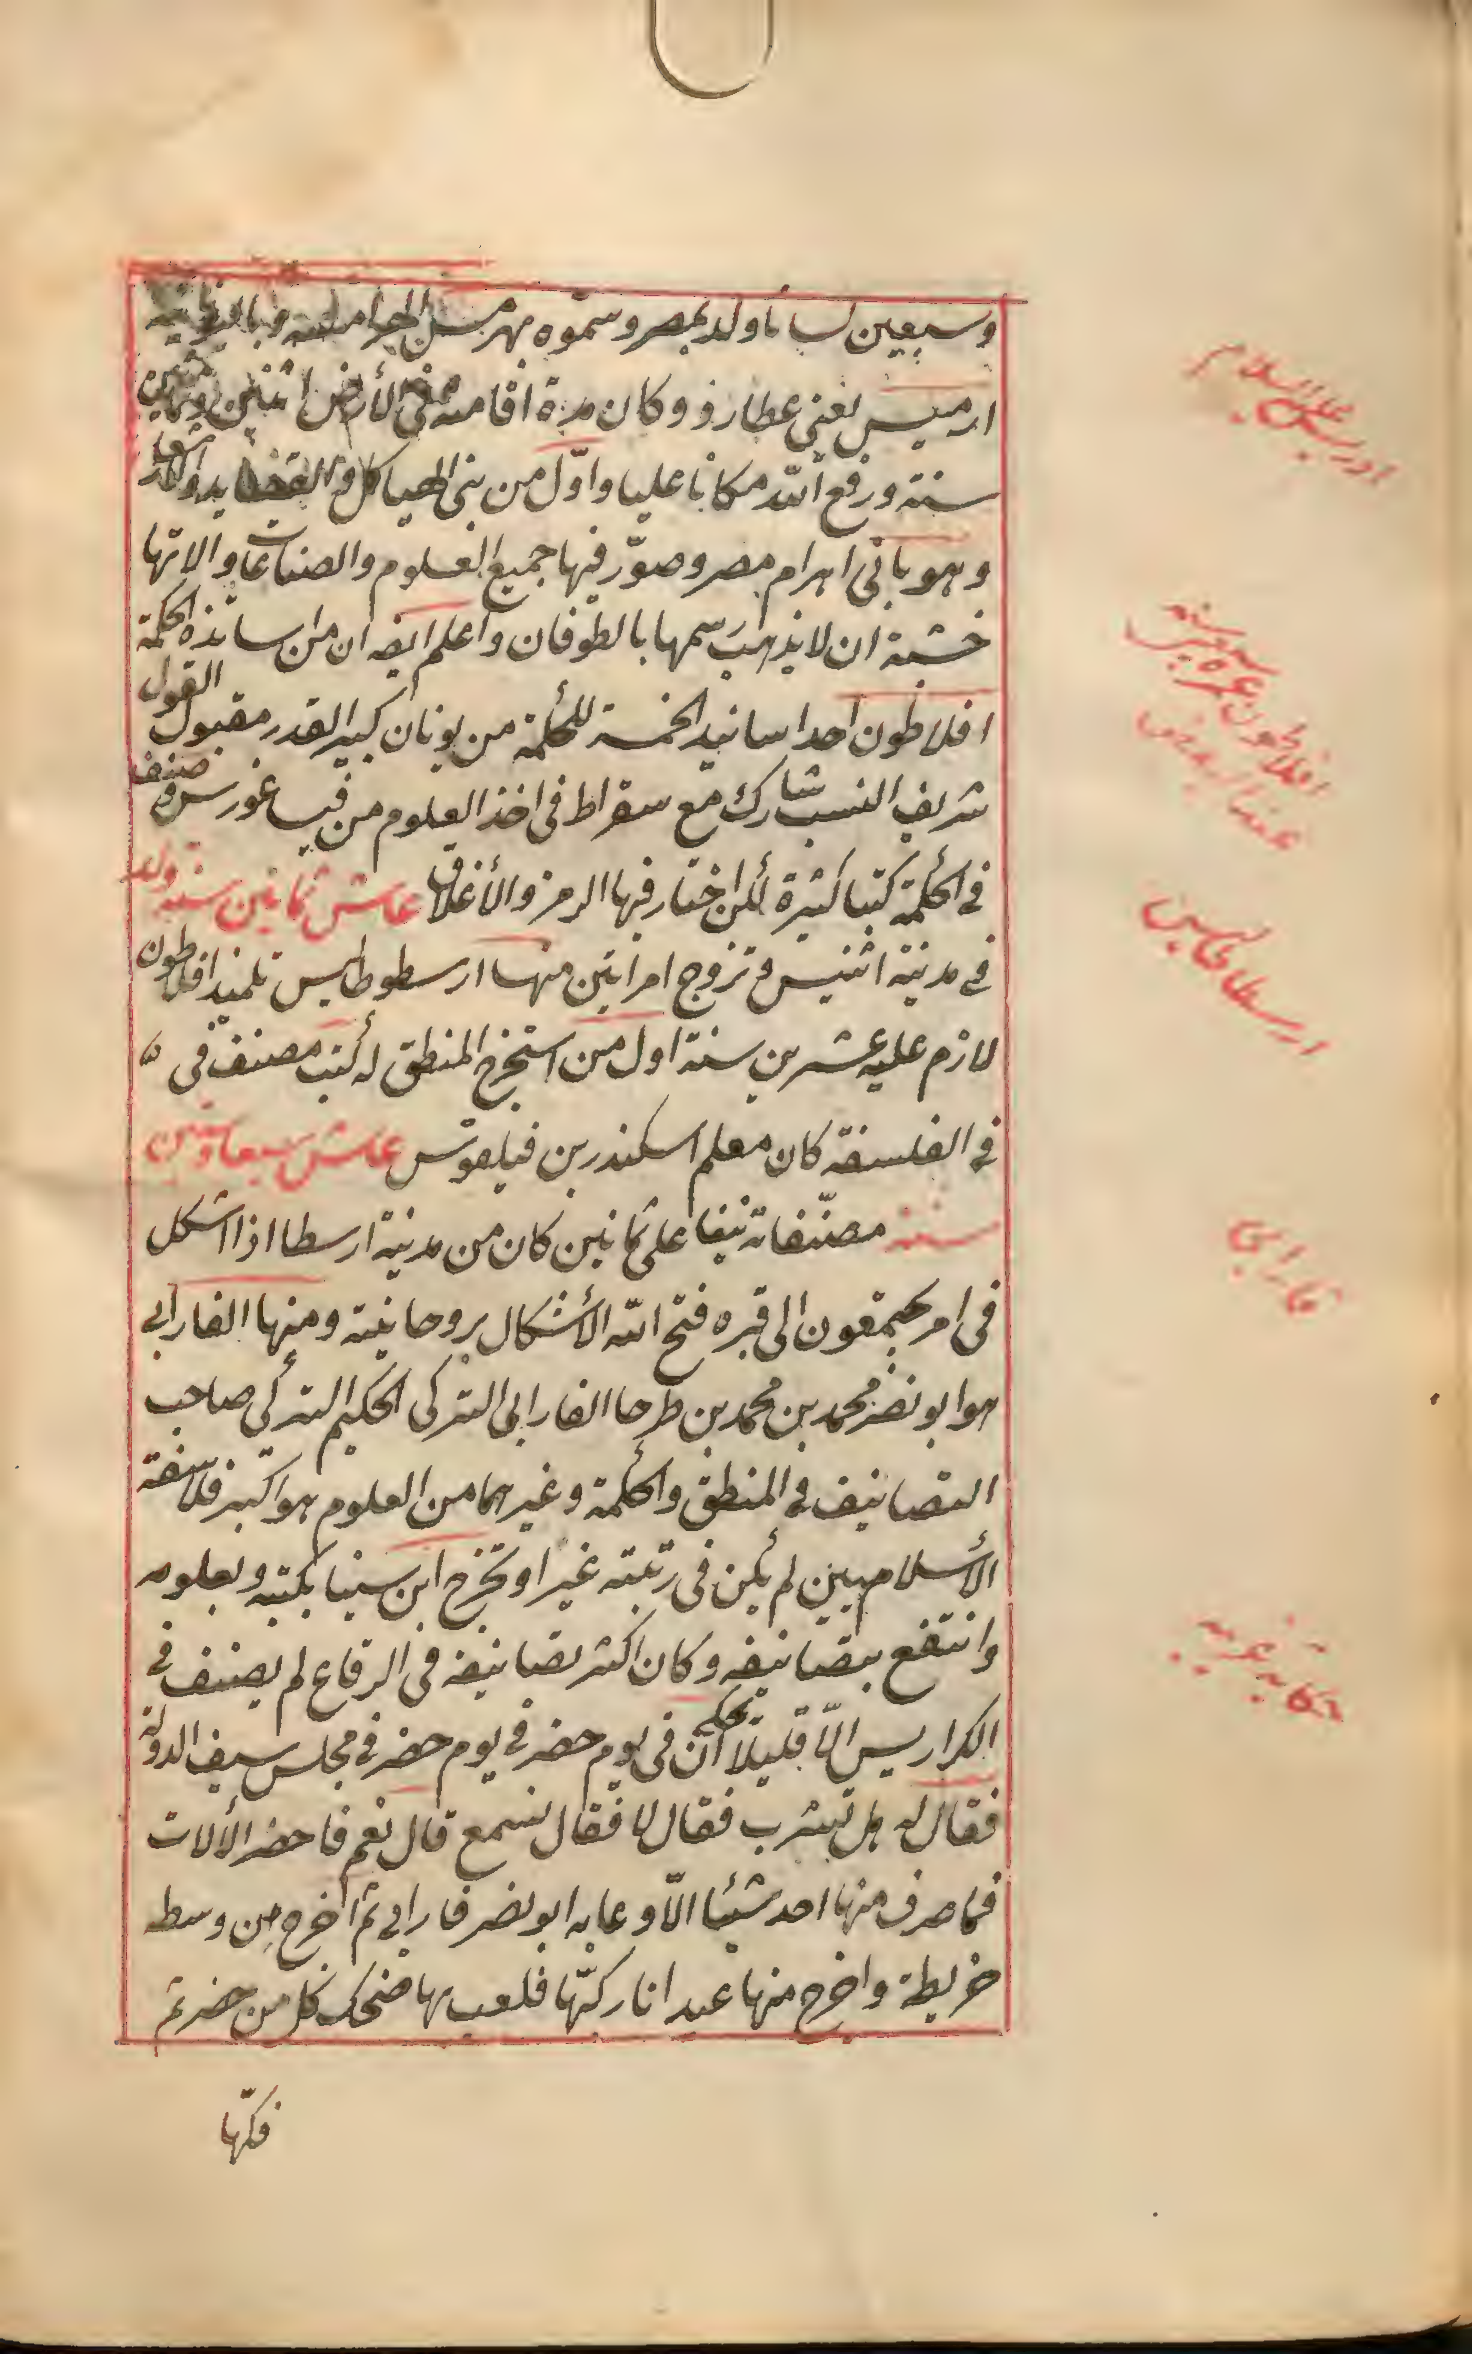 وسبعين لسانا ولد بمصر وسمّوه بهرمس الهرامسة وباليونانية
ارميس يعنى عطارد وكان مدة اقامته فى الأرض اثنين وثمانين
سنة ورفع الله مكانا عليا واوّل من بنى الهياكل
وهو بانى اهرام مصر وصوّر فيها جميع العلوم والصناعات والاتها
خشية ان لا يذهب رسمها بالطوفان واعلم ايضه ان من اساتذة الحكمة
افلاطون احد اسانيد الخمسة للحكمة من يونان كبير القدر مقبول القول
شريف النسب شارك مع سقراط فى اخذ العلوم من فيساغورس وصنف
فى الحكمة كتبا كثيرة لكن اختار فيها الرمز والأغلاق عاش ثمانين سنة ولد
فى مدينة اثنيس وتزوج امراتين منها ارسطوطاليس تلميذ افلاطون
لازم عليه عشرين سنة اول من استخرج المنطق له كتب مصنف فى
فى الفلسفة كان معلم اسكندر بن فيلقوس عاش سبعا وستين
سنة مصنّفاته نيفا على ثمانين كان من مدينة ارسطا اذا اشكل
فى امر يجتمعون الى قبره فتح الله الأشكال بروحانيته ومنها الفارابى
هو ابو نضر محمد بن محمد بن طرحا الفارابى التركى الحكيم التركى صاحب
التصانيف فى المنطق والحكمة وغيرهما من العلوم هو اكبر فلاسفة
الأسلاميين لم يكن فى رتبته غير او تخرج ابن سينا بكتبه وبعلومه
وانتفع بتصانيفه وكان اكثر تصانيفه فى الرقاع لم يصنف فى
الكراريس الّا قليلا يحكى ان فى يوم حضر فى يوم حضر فى مجلس سيف الدولة
فقال له هل تشرب فقال لا فقال تسمع قال نعم فاحضر الألات
فما صرف منها احد شيئا الّا وعابه ابو نضر فارابى ثم اخرج من وسطه
خريطة واخرج منها عيدانا ركبّها فلعب بها ضحك كل من حضر ثم
فكّها
ادريس عليه السلام
افلاطون
ارسطاطاليس
فارابى
حكاية غريبه